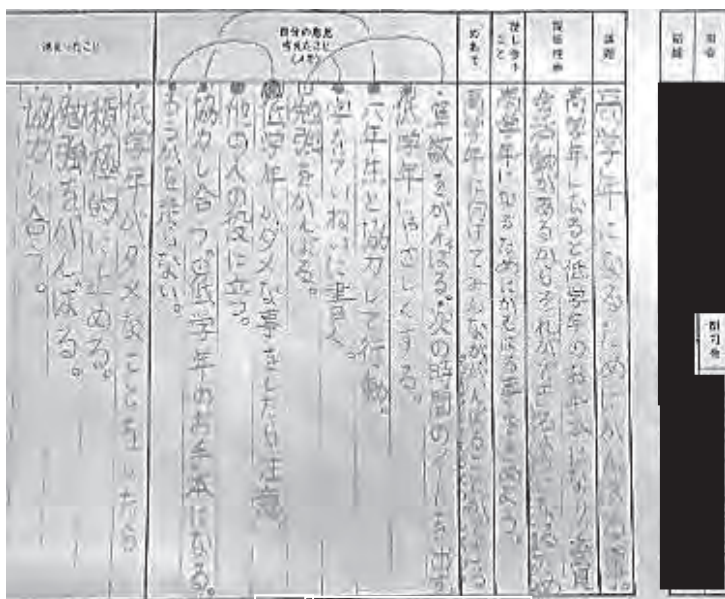 司会
記録
議題
高学年になるためにがんばる事。
提案理由
高学年になると低学年のお手本になり委員
会活動があるからそれができるようになるため
話し合う
こと
高学年になるためにがんばる事を
めあて
高学年に向けてみんなががんばることが
自分の意見
考えたこと
(メモ)
・算数をがんばる。次の時間のノートを出す
低学年にやさしくする。
六年生と協力して行動。
字をていねいに書く。
勉強をがんばる。
低学年がダメな事をしたら注意。
他の人の役に立つ。
協力し合って低学年のお手本になる。
決まったこと
低学年がダメなことをしたら
積極的に止める。
勉強をがんばる。
協力し合う。